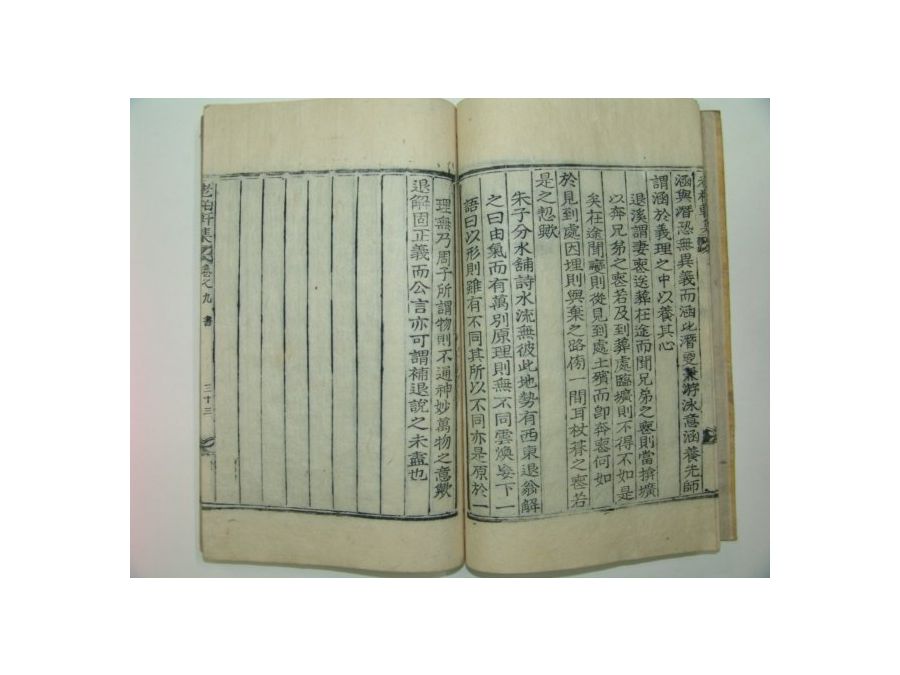 涵與潛恐無異義而涵比潛更兼游泳意涵養先師
謂涵於義理之中以養其心
退溪謂妻喪送葬在途而聞兄弟之喪則當揜壙
以奔兄弟之喪若及到葬處臨壙則不得不如是
矣在途聞變則從見到處土殯而卽奔喪何如
於見到處因埋則興棄之路衖一間耳杖朞之喪若
是之恝歟
朱子分水舖詩水流無彼此地勢有西東退翁解
之曰由氣而有萬別原理則無不同雲煥妄下一
語曰以形則雖有不同其所以不同亦是原於一
理無乃周子所謂物則不通神妙萬物之意歟
退解固正義而公言亦可謂補退說之未盡也
老柏軒集
卷之九
書
三十三